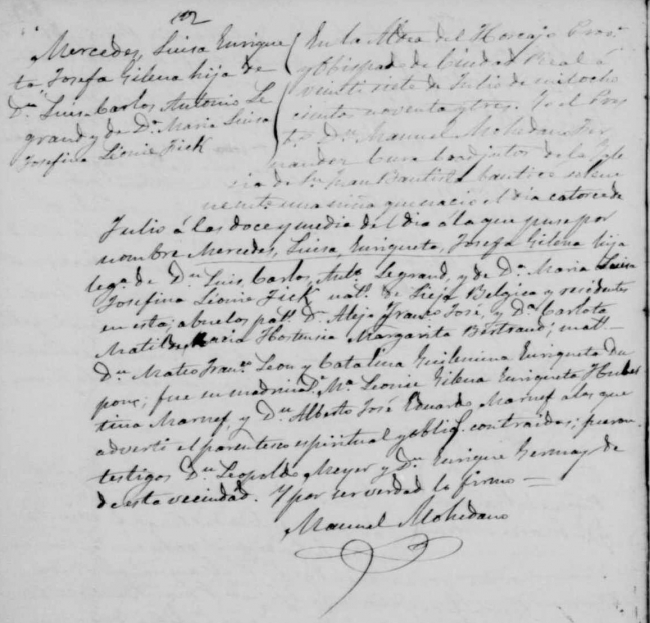 Mercedes, Luisa Enrique
ta Josefa Gilena hija de
Dn. Luis Carlos Antonio Le
grand y de Dª Maria Luisa
Josefina Lionie Fick
En la Aldea del Horcajo Prov.ª
y Obispado de Ciudad Real á
veinti siete de Julio de mil ocho
cientos noventa y tres. Yo el Pres
b.º Dn. Manuel Mohedano Fer
nandez Cura Coadjutor de la Igle
sia de Sn. Juan Bautista bautice solem
nemte. una niña que nacio el dia catorce de
Julio á las doce y media del dia á la que puse por
nombre Mercedes, Luisa, Enriqueta, Josefa Gilena hija
leg.ª de Dn. Luis, Carlos, Antº. Legrand, y de Dª. Maria Luisa
Josefina Lionie Fick nat.s de Lieja Belgica y residentes
en esta; abuelos pat.s Dn. Alejo Franco José, y Dª. Carlota
Matilde, Maria Hortensia Margarita Bertrand; mat.s
Dn. Mateo Franco. Leon y Catalina Guillermina Enriqueta Du
pont; fue su madrina Dª. Mª. Leonie Gilena Enriqueta Huber
tina Marnef, y Dn. Alberto José Eduardo Marnef a los que
adverti el parentesco espiritual y oblig.s contraidas; fueron
testigos Dn. Leopoldo Meyer y Dn. Enrique Germay de
de esta vecindad. Y por ser verdad lo firmo
Manuel Mohedano